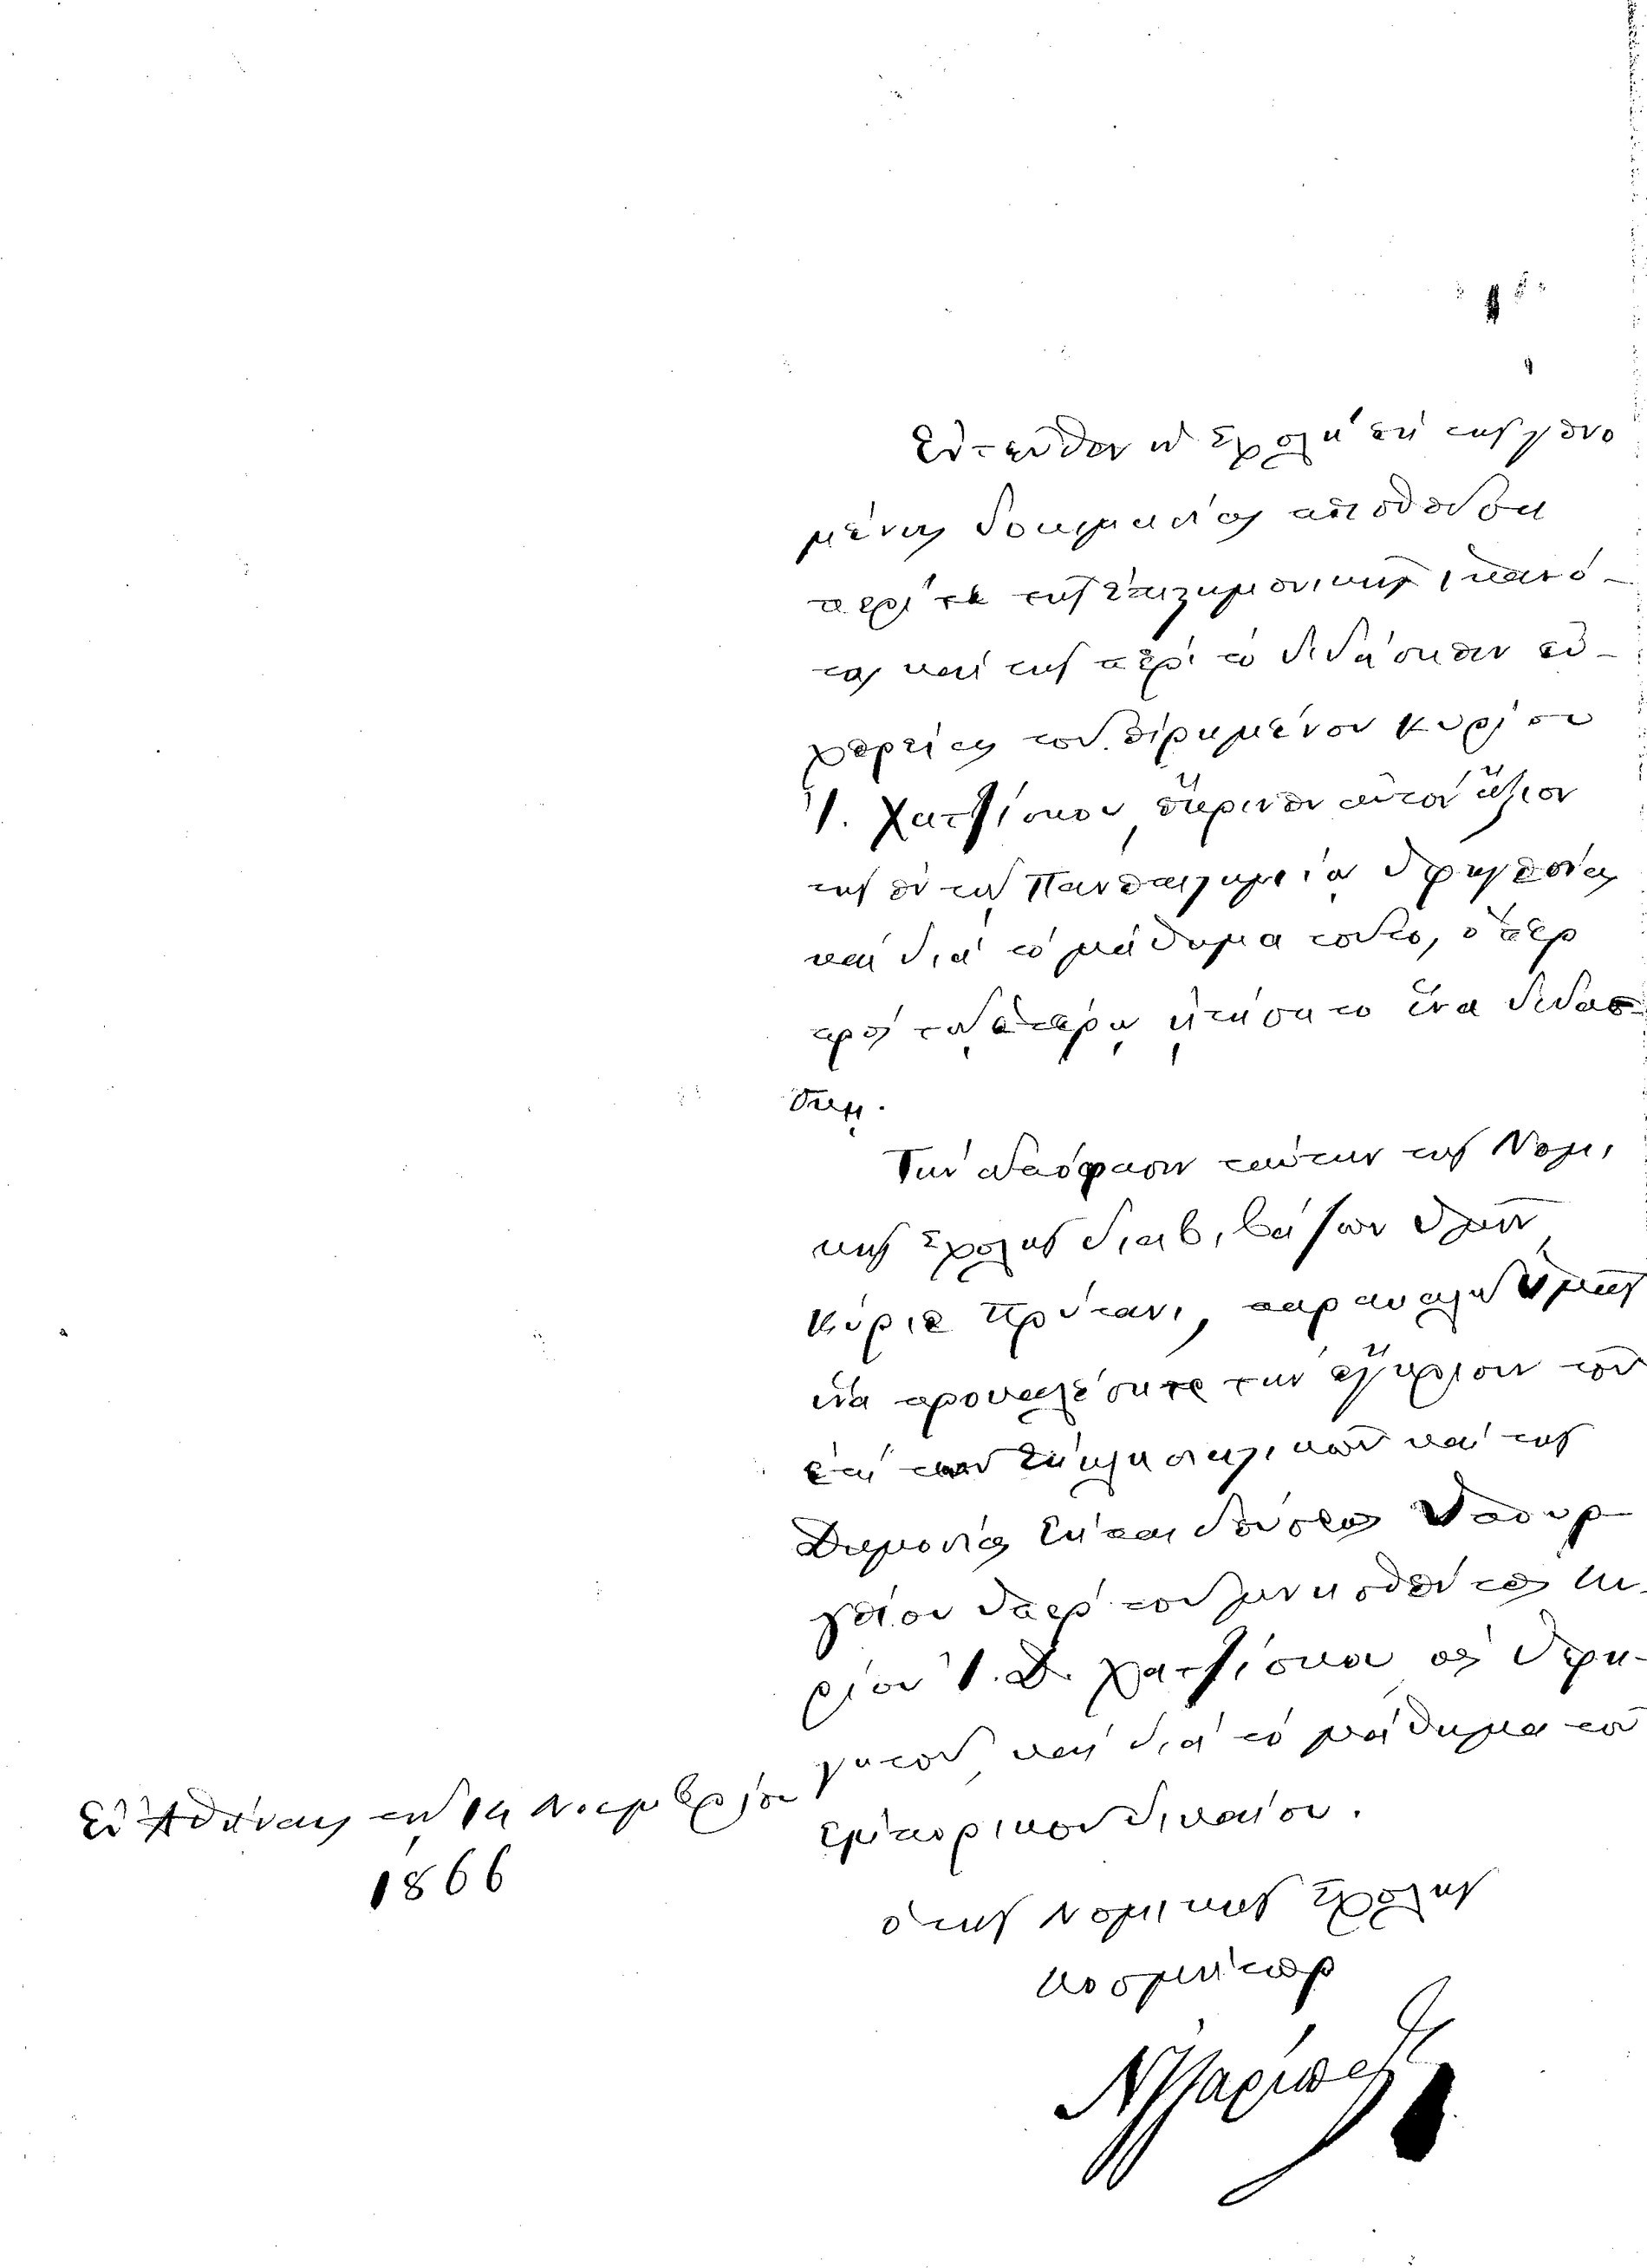 Ἐντεῦθεν ἡ Σχολὴ ἐκ τῆς γενο
μένης δοκιμασίας πεισθεῖσα
περί τε τῆς ἐπιστημονικῆς ἱκανό-
τητος καὶ τῆς περὶ τὸ διδάσκειν εὐ-
χερείας τοῦ εἰρημένου Κυρίου
Ἰ. Χατζίσκου, ἔκρινεν αὐτὸν ἄξιον
τῆς ἐν τῷ Πανεπιστημίῳ ὑφηγεσίας
καὶ διὰ τὸ μάθημα τοῦτο, ὅπερ
πρὸς τῷ ἑτέρῳ ᾐτήσατο ἵνα διδάσ-
κῃ.
Τὴν ἀπόφασιν ταύτην τῆς Νομι
κῆς Σχολῆς διαβιβάζων ὑμῖν,
Κύριε Πρύτανι, παρακαλῶ ὑμᾶς
ἵνα προκαλέσητε τὴν ἔγκρισιν τοῦ
ἐπὶ τῶν Ἐκκλησιαστικῶν καὶ τῆς
Δημοσίας Ἐκπαιδεύσεως Ὑπουρ-
γείου ὑπὲρ τοῦ μνησθέντος Κυ-
ρίου Ἰ. Δ. Χατζίσκου ὡς ὑφη-
γητοῦ καὶ διὰ τὸ μάθημα τοῦ
Ἐμπορικοῦ δικαίου.
Ἐν Ἀθήναις τῇ 14 Νοεμβρίου
1866
ὁ τῆς Νομικῆς Σχολῆς
Κοσμήτωρ